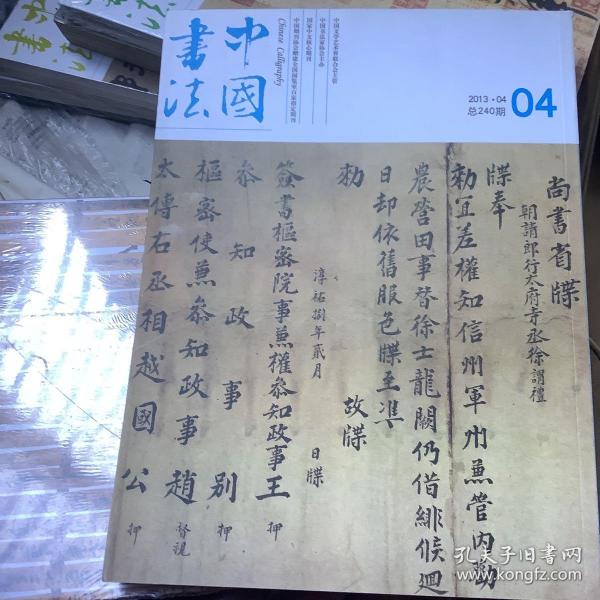 中國
書法
Chinese Calligraphy
中国文学艺术界联合会主管
中国书法家协会主办
国家中文核心期刊
2013·04
总240期
04
尚書省牒
朝請郎行太府寺丞徐謂禮
牒奉
勑宜差權知信州軍州兼管內勸
農營田事替徐士龍闕仍借緋候廻
日却依舊服色牒至準
勑
故牒
淳祐捌年貳月
日牒
簽書樞密院事兼權參知政事王
押
參知政事別
押
樞密使兼參知政事趙
督視
太傅右丞相越國公
押
書法
孔夫子旧书网
www.kongfz.com